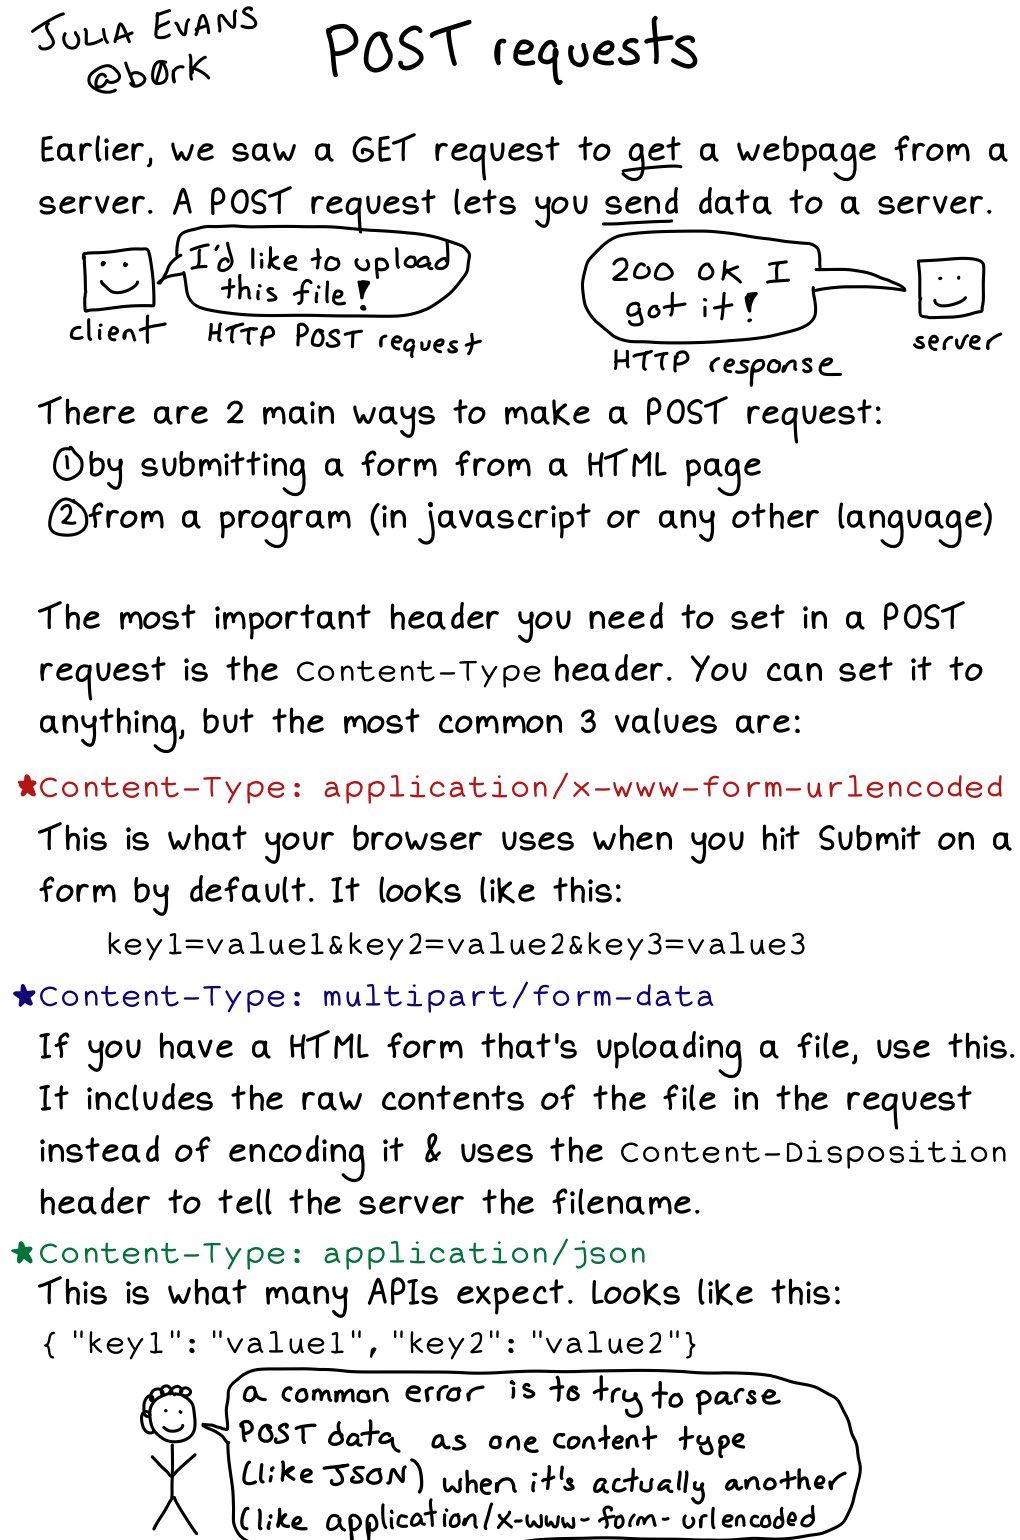 JULIA EVANS
@b0rk
POST requests
Earlier, we saw a GET request to get a webpage from a
server. A POST request lets you send data to a server.
I'd like to upload
this file!
client
HTTP POST request
200 OK I
got it!
HTTP response
server
There are 2 main ways to make a POST request:
① by submitting a form from a HTML page
② from a program (in javascript or any other language)
The most important header you need to set in a POST
request is the Content-Type header. You can set it to
anything, but the most common 3 values are:
★Content-Type: application/x-www-form-urlencoded
This is what your browser uses when you hit Submit on a
form by default. It looks like this:
key1=value1&key2=value2&key3=value3
★Content-Type: multipart/form-data
If you have a HTML form that's uploading a file, use this.
It includes the raw contents of the file in the request
instead of encoding it & uses the Content-Disposition
header to tell the server the filename.
★Content-Type: application/json
This is what many APIs expect. Looks like this:
{ "key1": "value1", "key2": "value2"}
a common error is to try to parse
POST data as one content type
(like JSON) when it's actually another
(like application/x-www-form-urlencoded